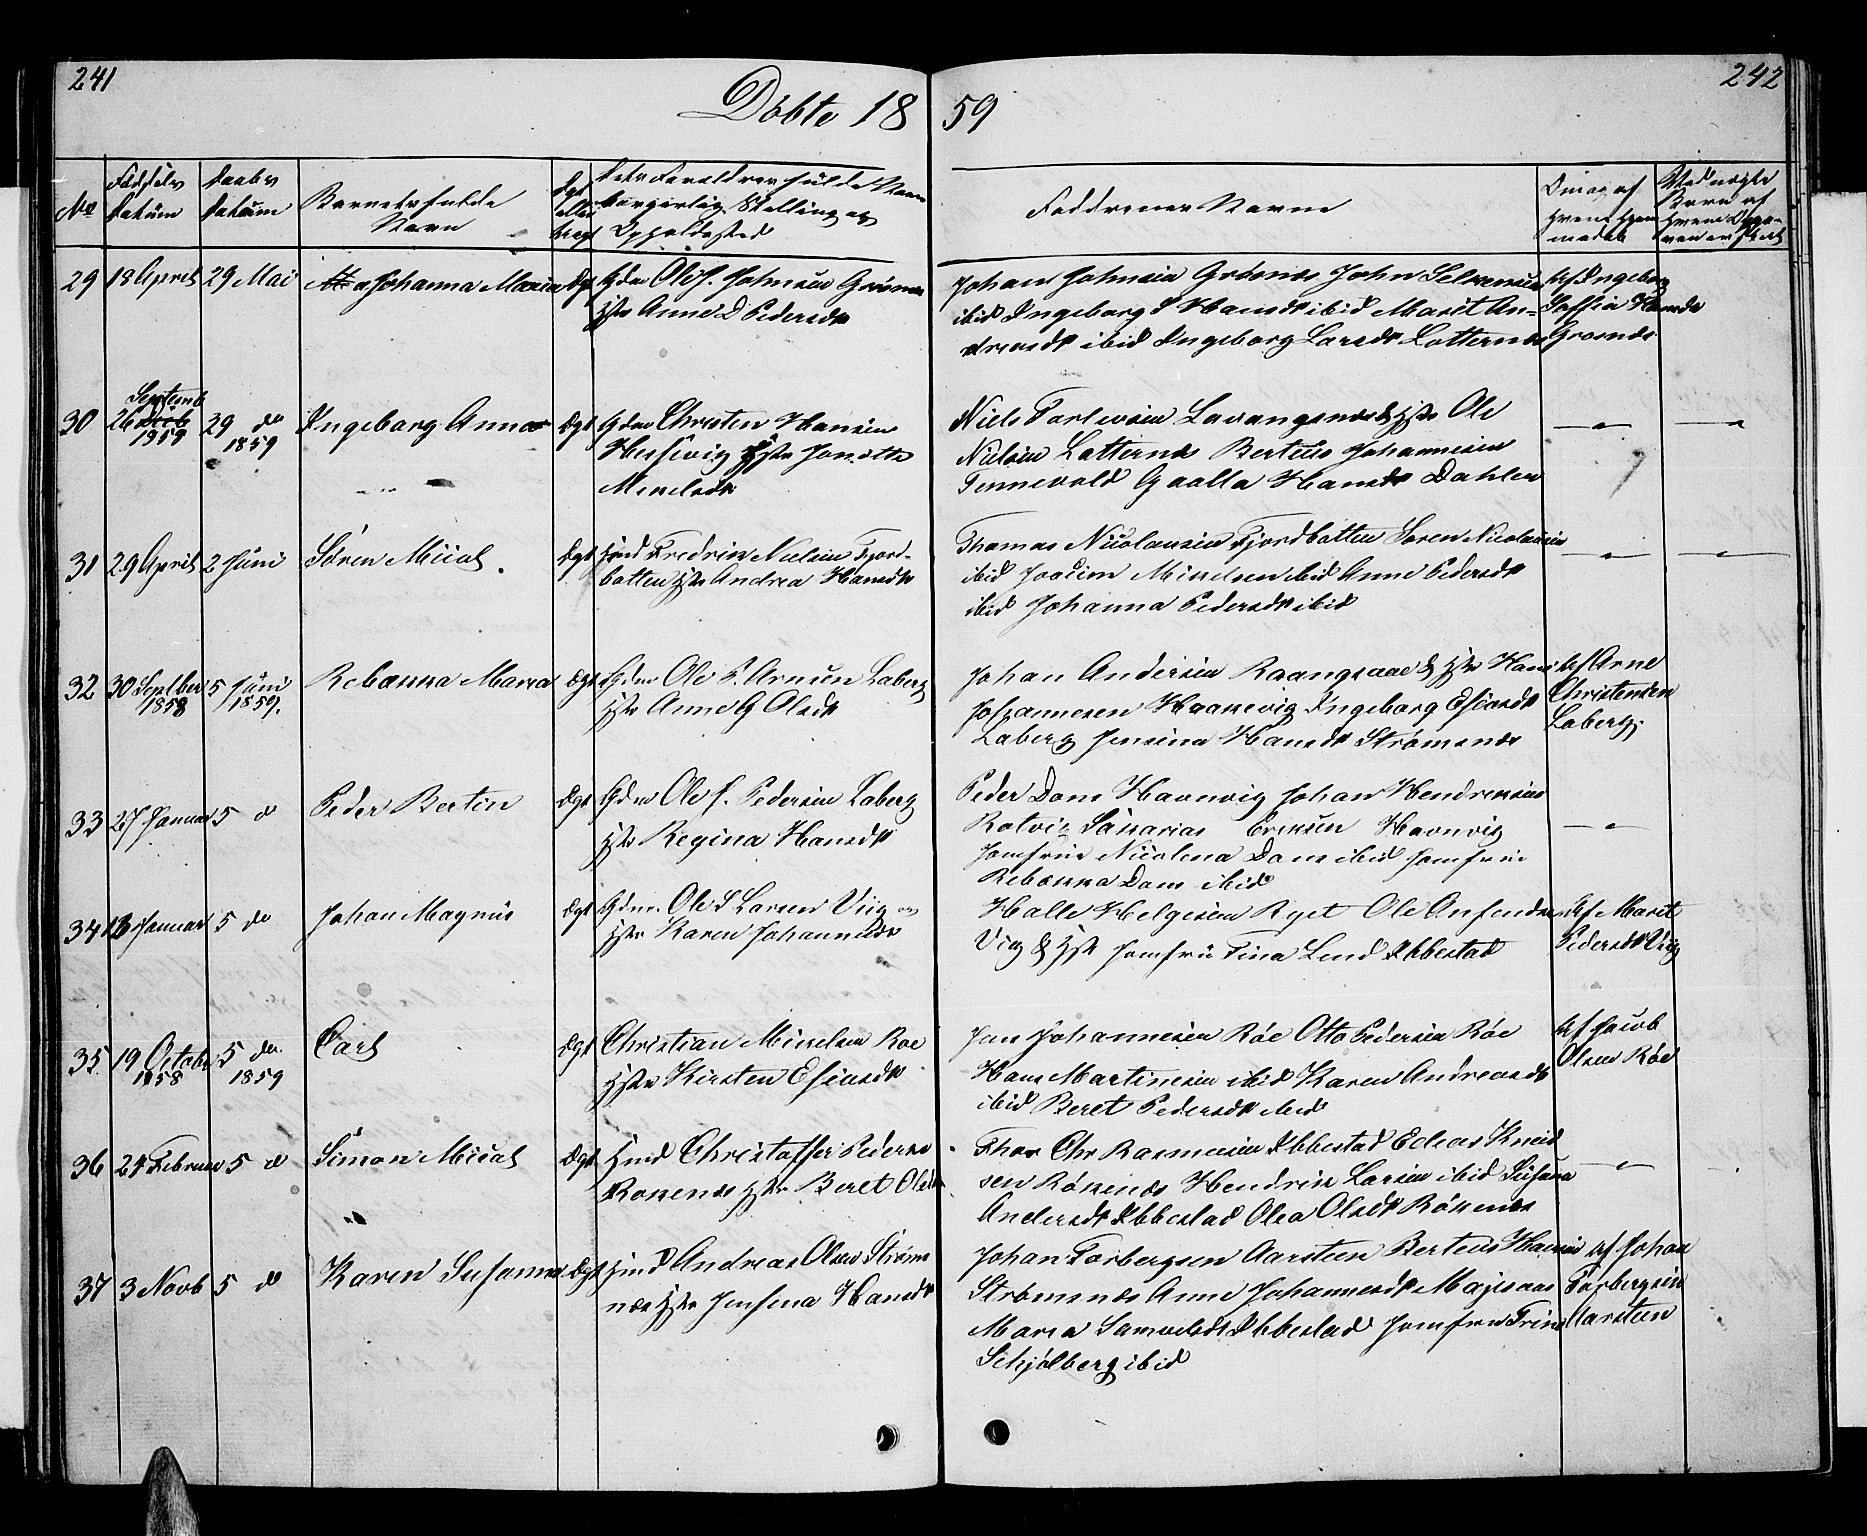 241
242
Döbte 18 59
No
Fødsels Datum
Daabs Datum
Barnets fulde Navn
Ægt eller uægt
Dets Forældres fulde Navn borgerlig Stilling og Opholdssted
Faddernes Navne
29 18 April 29 Mai Johanna Maria Ægt Gdm Ole J. Johnsen Grøsnes
Hstr Anne D Pedersdt
Johan Johnsen Grøsnes John
ibid Ingeborg S Hansdt ibid Marit An-
dreasdt ibid Ingeborg Larsdt Lotternes
Af Ingeborg
Soffia Hansdt
Grosnes
30 26 Septemb 1859 29 do 1859 Ingeborg Anna Ægt Gdm Christen Hansen
Hstr Jonette
Mikelsdt
Niels Torlevsen Lavangsnes & Hstr Ole
Nielsen Lotternes Berteus Johannesen
Tennevold Hansdt Dahlen
31 29 April 2 Juni Sören Mical Ægt Hmd Fredrik Nielsen Fjord-
botten Hstr Andrea Hansdt
Thomas Nicolaisen Fjordbotten Soren Nicolaisen
ibid Joacim Mikelsen ibid Anne Pedersdt
ibid Johanna Pedersdt ibid
32 30 Septber 1858 5 Juni 1859. Rebanna Marea Ægt Gdm Ole P. Arnsen Laberg
Hstr Anne G Olsdt
Johan Andersen Raangsaae & Hstr Hans
Johannesen Haakevig Ingeborg Esiasdt
Laberg Jensina Hansdt Strømsnes
Af Arne
Christensen
Laberg.
33 27 Januar 5 d Peder Bertin Ægt Gdm Ole J. Pedersen Laberg
Hstr Regina Hansdt
Peder Dons Havnvig Johan Hendriksen
Rotvig Sakarias Eriksen Havnvig
Jomfrue Nicolena Dons ibid Jomfrue
Rebanna Dons ibid
34 Januar 5 do Johan Magnus Ægt Gdm. Ole S Larsen Viig og
Hstr Karen Johannesdt
Halle Helgesen Ryet Ole Anfendsen
Viig & Hstr Jomfru Tina Lund Ibbestad
Af Marit
Pedersdt Viig
35. 19 Octobr 1858 5 do. 1859 Carl Ægt Christian Mikelsen Roe
Hstr Kirsten Esiasdt
Jens Johannesen Röe Otto Pedersen Röe
Hans Martinesen ibid Karen Andreasdt
ibid Beret Pedersdt ibid
Af Jacob
Olsen Röe
36 24 Februar 5 d Simon Mical Ægt Hmd Christoffer Pedersen
Rokenes Hstr Beret Olsdt
Thor Chr Rasmusen Ibbestad Edias Kneid
sen Rökenes Hendrik Larsen ibid Susana
Andersdt Ibbestad Olea Olsdt Rökenes
37 3 Novb 5 d Karen Susanna Ægt Hmd Andreas Olsen Strøms
nes Hstr Jensina Hansdt
Johan Torbergsen Aarsteen Berteus Hansen
Strömsnes Anne Johannesdt
Marea Samuelsdt Ibbestad Jomfru Trine
Schjölberg ibid
Af Johan
Torbergsen
Aarsteen